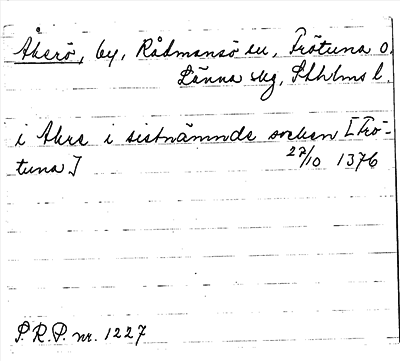 Åkerö, by, Rådmansö sn, Frötuna o.
Länna skg, Sthlms l.
i Akre i sistnämnde socken [Frö-
tuna]
27/10 1376
P.R.P. nr. 1227